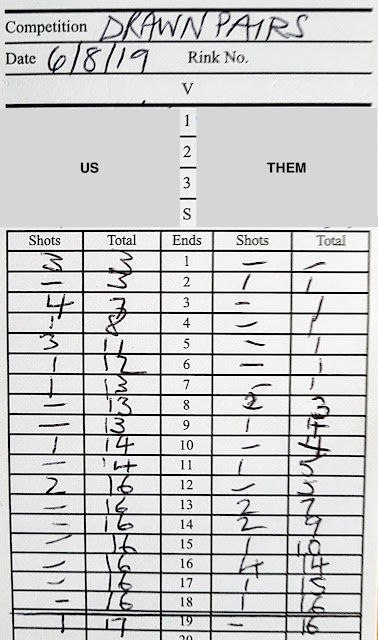 Competition DRAWN PAIRS
Date 6/8/19 Rink No.
V
1
2
US THEM
3
S
Shots Total Ends Shots Total
3 3 1 – –
– 3 2 1 1
4 7 3 – 1
1 8 4 – 1
3 11 5 – 1
1 12 6 – 1
1 13 7 – 1
– 13 8 2 3
– 13 9 1 4
1 14 10 – 4
– 14 11 1 5
2 16 12 – 5
– 16 13 2 7
– 16 14 2 9
– 16 15 1 10
– 16 16 4 14
– 16 17 1 15
– 16 18 1 16
1 17 19 – 16
20